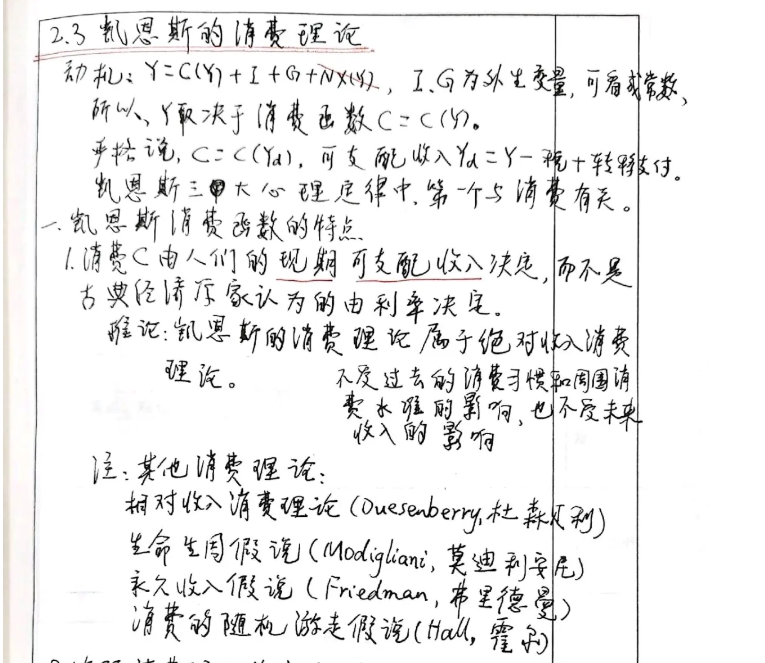 2.3 凯恩斯的消费理论
动机：Y=C(Y)+I+G+NX(Y)，I、G为外生变量，可看成常数，
所以，Y取决于消费函数C=C(Y)。
严格说，C=C(Yd)，可支配收入Yd=Y-税+转移支付。
凯恩斯三大心理定律中，第一个与消费有关。
一、凯恩斯消费函数的特点
1.消费C由人们的现期可支配收入决定，而不是
古典经济学家认为的由利率决定。
推论：凯恩斯的消费理论属于绝对收入消费
理论。
不受过去的消费习惯和周围消
费水准的影响，也不受未来
收入的影响
注：其他消费理论：
相对收入消费理论（Duesenberry，杜森贝利）
生命生周假说（Modigliani，莫迪利安尼）
永久收入假说（Friedman，弗里德曼）
消费的随机游走假说（Hall，霍尔）